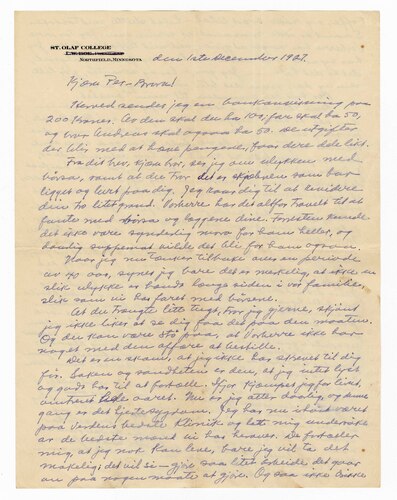 ST. OLAF COLLEGE
NORTHFIELD, MINNESOTA
den 1ste December 1927.
Kjære Per-Brors!
Herved sendes jeg en bankanvisning paa
200 Kroner. Av den skal du ha 100, far skal ha 50,
og bror Andreas skal ogsaa ha 50. De utgifter
der blir med at hæve pengene, faar dere dele likt.
Fra dit brev, kjære bror, ser jeg om ulykken med
børsa, samt at du tror det er skjæbnen som har
ligget og lurt paa dig. Jeg
litegrand. Vorherre har det altfor travelt til at
fante med børsa og buksene dine. Forresten kunde
det ikke være synderlig moro for ham heller, og
daarlig vilde det bli for ham ogsaa.
Naar jeg nu tænker tilbake over en periode
av 40 aar, synes jeg bare det er merkelig, at ikke en
slik ulykke er hændt længe siden i vor familie,
slik som vi har faret med børsene.
At du trængte litt tugt, tror jeg gjerne, skjønt
jeg ikke liker at se dig faa det paa den maaten.
Og du kan være stø paa, at Vorherre ikke har
noget med den affære at bestille.
Det er en skam, at jeg ikke har skrevet til dig
før. Saken og sandheten er den, at jeg intet nyt
og godt har til at fortælle. Ifjor kjæmpet jeg for livet,
omtrent hele aaret. Nu er jeg atter daarlig, og denne
gang er det hjertesygdom. Jeg har nu i høst været
paa verdens bedste Klinik og latt mig undersøke
av de bedste mænd vi har herover. De fortæller
mig, at jeg nok kan leve, bare jeg vil ta det
makelig; det vil si – gjøre saa litet arbeide det gaar
an paa nogen maate at gjøre. Og saa ikke